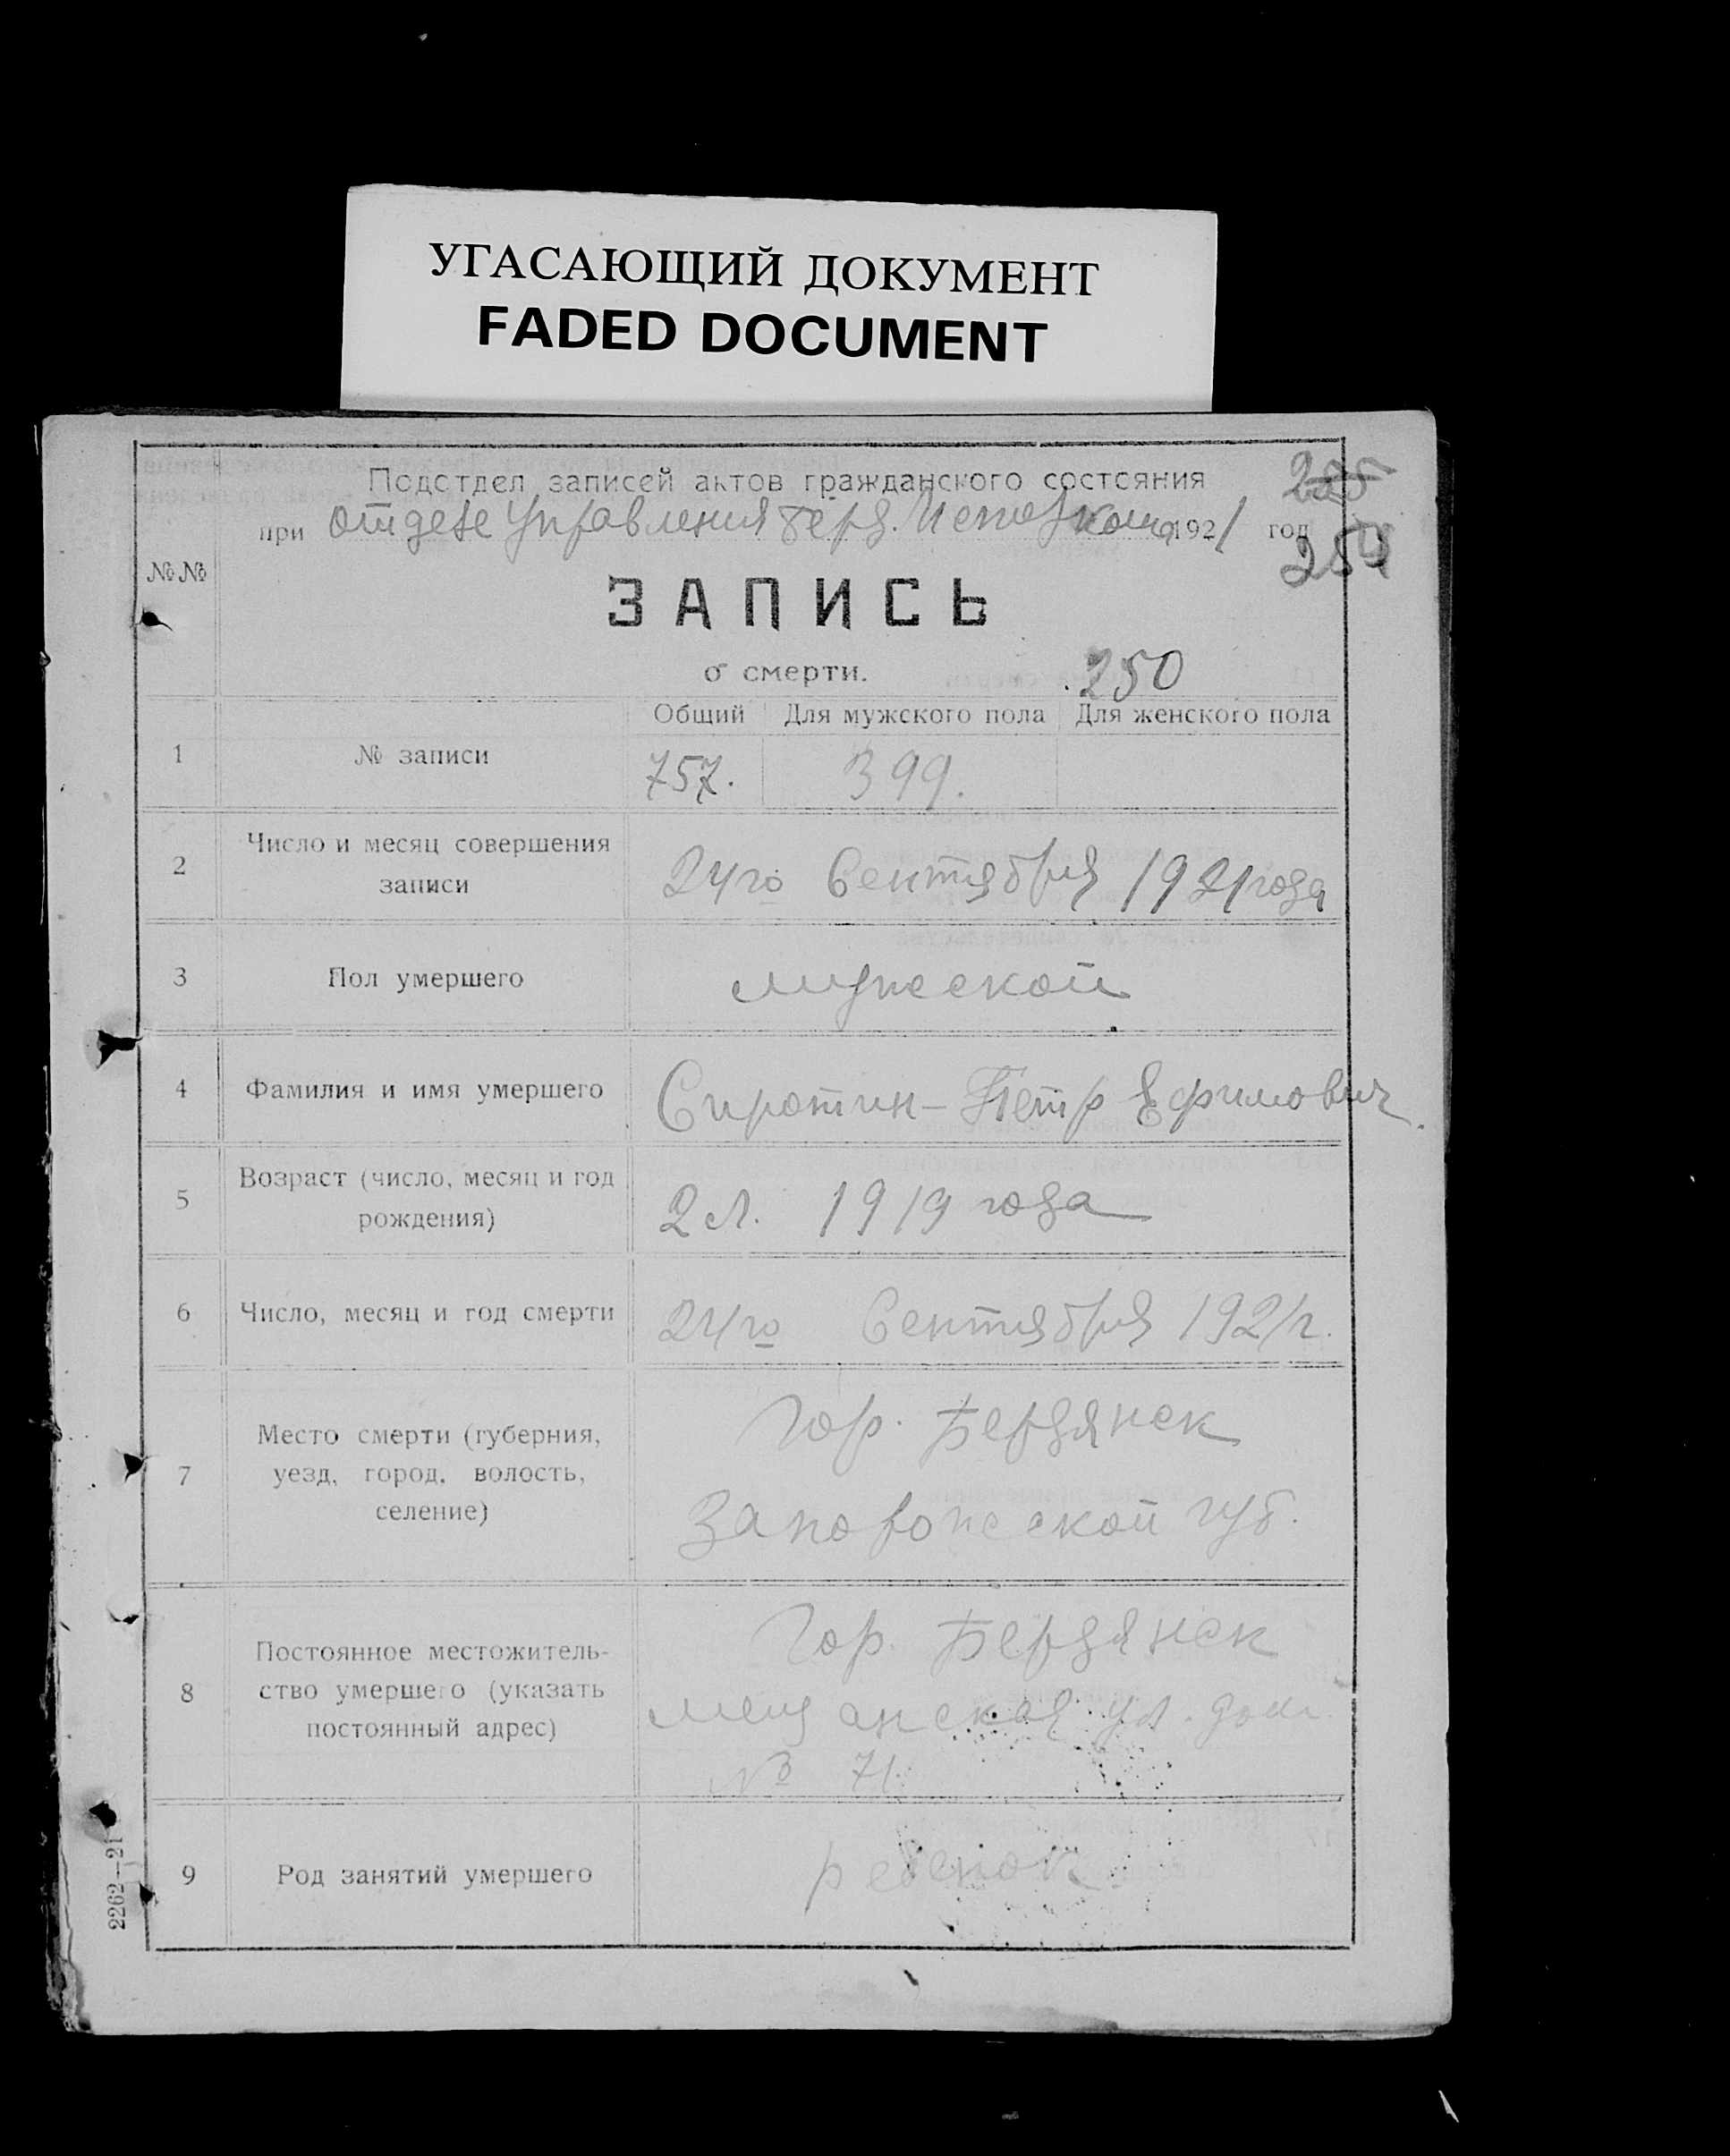 УГАСАЮЩИЙ ДОКУМЕНТ
FADED DOCUMENT
Подотдел записей актов гражданского состояния
225
при отделе Управления Берд. Исполкома 1921 год
254
№№
ЗАПИСЬ
о смерти.
250
Общий Для мужского пола Для женского пола
1 № записи 757. 399.
2 Число и месяц совершения
записи
24го Сентября 1921 года
3 Пол умершего мужской
4 Фамилия и имя умершего Сиротин - Петр Ефимович
5 Возраст (число, месяц и год
рождения)
2 л. 1919 года
6 Число, месяц и год смерти 24го Сентября 1921 г.
7 Место смерти (губерния,
уезд, город, волость,
селение)
Гор. Бердянск
Запорожской губ.
8 Постоянное местожитель-
ство умершего (указать
постоянный адрес)
Гор. Бердянск
Мещанская ул. дом
№ 71
9 Род занятий умершего ребенок
2262—21